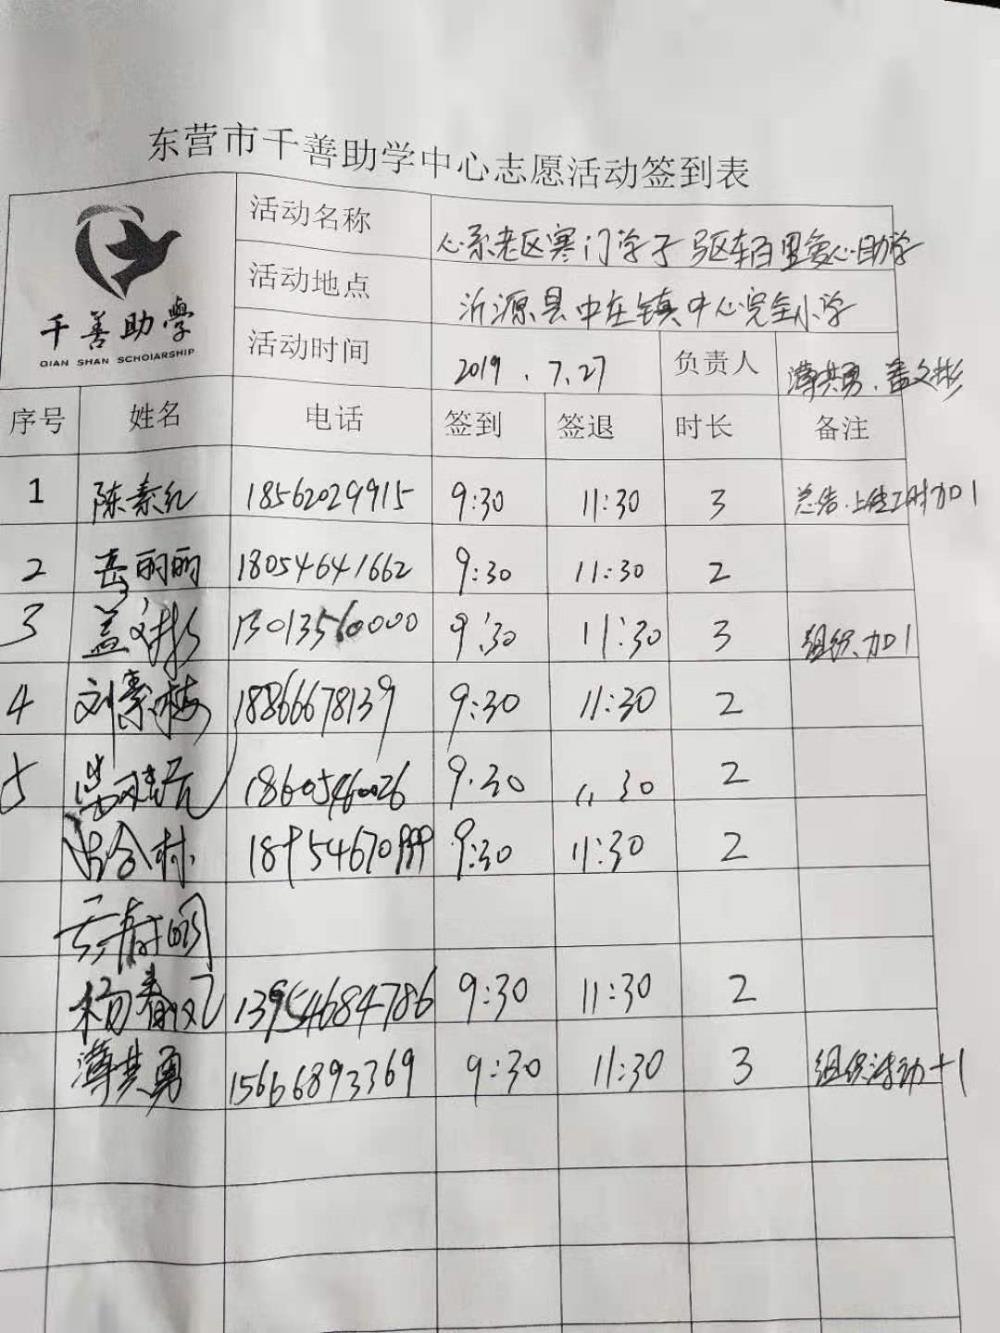 东营市千善助学中心志愿活动签到表
千善助學
QIAN SHAN SCHOLARSHIP
活动名称 心系老区寒门学子 驱车百里爱心助学
活动地点 沂源县中庄镇中心完全小学
活动时间 2019.7.27 负责人 薄其勇、盖文彬
序号 姓名 电话 签到 签退 时长 备注
1 陈素红 18562029915 9:30 11:30 3 总结.上传工时加1
2 岳丽丽 18054641662 9:30 11:30 2
3 盖文彬 13013560000 9:30 11:30 3 组织、加1
4 刘素梅 18866678139 9:30 11:30 2
5 18605460026 9.30 11 30 2
村 18954670999 9:30 11:30 2
明
杨春 13954684786 9:30 11:30 2
薄其勇 15666893369 9:30 11:30 3 组织活动+1